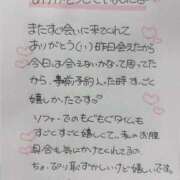 またすぐ会いに来てくれて
ありがとう(い)昨日会えたから
今日は会えないかなって思ってた
から、事前予約入った時すごく
嬉しかったです♡
ソファーでのもぐもぐタイムも
すごくすごく嬉しくて、私のお腹
具合も気にかけてくれてた
ちょっぴり恥ずかしいけど嬉しいです。